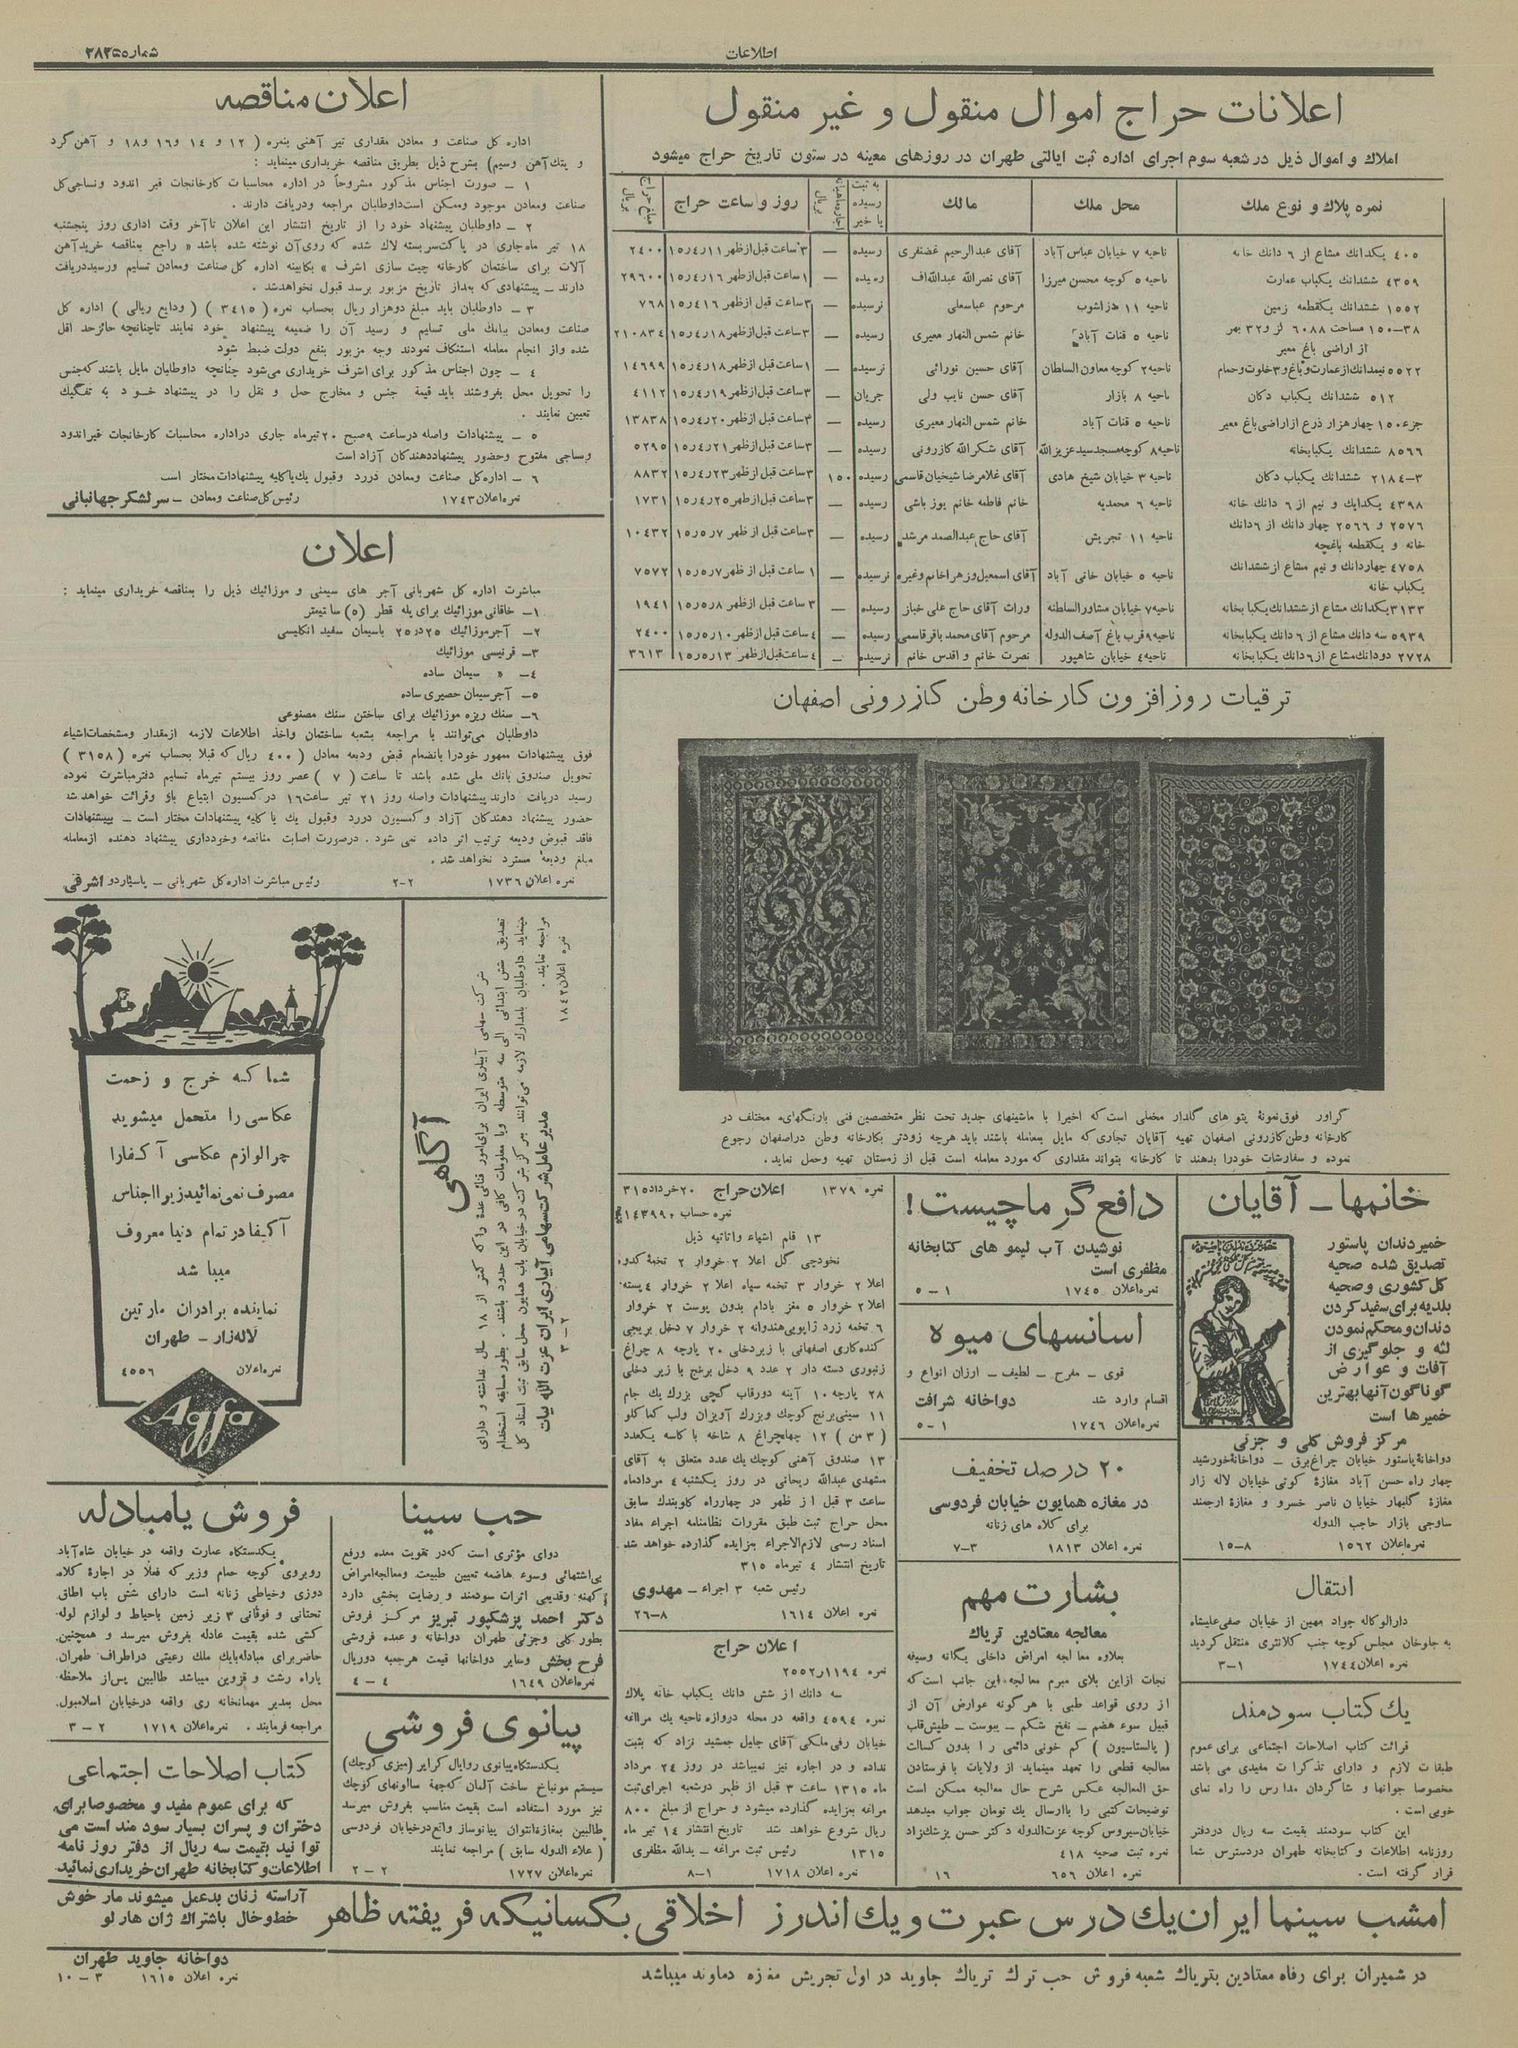 اطلاعات
شماره ۲۸۲۵۵
اعلانات حراج اموال منقول و غیر منقول
املاک و اموال ذیل در شعبه سوم اجرای اداره ثبت ایالتی طهران در روزهای معینه در ستون تاریخ حراج میشود
نمره پلاک و نوع ملک
محل ملک
مالک
روز و ساعت حراج
۴۰۵ یکدانک مشاع از ۶ دانک خانه ناحیه ۷ خیابان عباس آباد آقای عبدالرحیم غضنفری رسیده — ۳ ساعت قبل از ظهر ۱۵٫۴٫۱۱ ۲۴۰۰
۴۳۵۹ ششدانک یکباب عمارت ناحیه ۵ کوچه محسن میرزا آقای نصرالله عبداللهاف رسیده — ۱ ساعت قبل از ظهر ۱۵٫۴٫۱۶ ۲۹۶۰۰
۱۵۵۲ ششدانک یکقطعه زمین ناحیه ۱۱ مرحوم عباسعلی نرسیده — ۳ ساعت قبل از ظهر ۷۶۸
۱۵۰-۳۸ مساحت ۶۰۸۸ از اراضی باغ معیر ناحیه ۵ قنات آباد خانم شمس النهار معیری رسیده — ۳ ساعت قبل از ظهر ۱۵٫۴٫۱۸ ۲۱۰۸۳۴
۵۵۲۲ نیمدانک از عمارت و باغ و ۳ خلوت و حمام ناحیه ۲ کوچه معاون السلطان آقای حسین نورائی نرسیده — ۱ ساعت قبل از ظهر ۱۵٫۴٫۱۸ ۱۴۶۹۹
۵۱۲ ششدانک یکباب دکان ناحیه ۸ بازار آقای حسن نایب ولی جریان — ۳ ساعت قبل از ظهر ۱۵٫۴٫۱۹ ۴۱۱۲
جزء ۱۵۰ چهار هزار ذرع از اراضی باغ معیر ناحیه ۵ قنات آباد خانم شمس النهار معیری رسیده — ۳ ساعت قبل از ظهر ۱۵٫۴٫۲۰ ۱۳۸۳۸
۸۵۶۶ ششدانک یکبابخانه ناحیه ۸ کوچه مسجد سید عزیز الله آقای شکر الله کازرونی رسیده — ۳ ساعت قبل از ظهر ۱۵٫۴٫۲۱ ۵۲۹۵
۲۱۸۴-۳ ششدانک یکباب دکان ناحیه ۳ خیابان شیخ هادی آقای غلامرضا شیخیان قاسمی رسیده ۱۵۰ ۳ ساعت قبل از ظهر ۱۵٫۴٫۲۳ ۸۸۳۲
۴۳۹۸ یکدانک و نیم از ۶ دانک خانه ناحیه ۶ محمدیه خانم فاطمه خانم یوز باشی رسیده — ۳ ساعت قبل از ظهر ۱۵٫۴٫۲۵ ۱۷۳۱
۲۵۷۶ و ۲۵۶۶ چهار دانک از ۶ دانک خانه و یکقطعه باغچه ناحیه ۱۱ تجریش آقای حاج عبدالصمد مرشد رسیده — ۳ ساعت قبل از ظهر ۱۵٫۵٫۷ ۱۰۴۳۲
۴۷۵۸ چهار دانک و نیم مشاع از ششدانک یکباب خانه ناحیه ۵ خیابان خانی آباد آقای اسمعیل و زهرا خانم و غیره نرسیده — ۱ ساعت قبل از ظهر ۱۵٫۵٫۷ ۷۵۷۲
۳۱۳۳ یکدانک مشاع از ششدانک یکبابخانه ناحیه ۷ خیابان مشاور السلطنه وراث آقای حاج علی خباز رسیده — ۳ ساعت قبل از ظهر ۱۵٫۵٫۸ ۱۹۴۱
۵۹۳۹ سه دانک مشاع از ۶ دانک یکبابخانه ناحیه ۹ قرب باغ آصف الدوله مرحوم آقای محمد باقر قاسمی رسیده — ۴ ساعت قبل از ظهر ۱۵٫۵٫۱۰ ۲۴۰۰
۲۷۲۸ دودانک مشاع از ۶ دانک یکبابخانه ناحیه ۴ خیابان شاهپور نصرت خانم و اقدس خانم نرسیده — ۴ ساعت قبل از ظهر ۱۵٫۵٫۱۳ ۳۶۱۳
ترقیات روز افزون کارخانه وطن کازرونی اصفهان
گراور فوق نمونهٔ پتو های گلدار مخملی است که اخیرا با ماشینهای جدید تحت نظر متخصصین فنی بارنگهای مختلف در
کارخانه وطن کازرونی اصفهان تهیه آقایان تجاری که مایل بمعامله باشند باید هرچه زودتر بکارخانه وطن دراصفهان رجوع
نموده و سفارشات خودرا بدهند تا کارخانه بتواند مقداری که مورد معامله است قبل از زمستان تهیه وحمل نماید.
خانمها - آقایان
خمیر دندان پاستور
تصدیق شده صحیه
کل کشوری و صحیه
بلدیه برای سفید کردن
دندان و محکم نمودن
لثه و جلوگیری از
آفات و عوارض
گوناگون آنها بهترین
خمیرها است
مرکز فروش کلی و جزئی
دواخانهٔ پاستور خیابان چراغ برق - دواخانهٔ خورشید
چهار راه حسن آباد مغازهٔ کوتی خیابان لاله زار
مغازهٔ گلبهار خیابان ناصر خسرو و مغازهٔ ارجمند
ساوجی بازار حاجب الدوله
نمره اعلان ۱۵۶۲ ۸-۱۵
انتقال
دارالوکاله جواد مهین از خیابان صفی علیشاه
به جلوخان مجلس کوچه جنب کلانتری منتقل گردید
نمره اعلان ۱۷۴۴ ۱-۳
یک کتاب سودمند
قرائت کتاب اصلاحات اجتماعی برای عموم
طبقات لازم و دارای تذکرات مفیدی می باشد
مخصوصا جوانها و شاگردان مدارس را راه نمای
خوبی است .
این کتاب سودمند بقیمت سه ریال دردفتر
روزنامه اطلاعات و کتابخانه طهران دردسترس شما
قرار گرفته است .
دافع گرما چیست !
نوشیدن آب لیمو های کتابخانه
مظفری است
نمره اعلان ۱۷۴۵ ۱-۵
اسانسهای میوه
قوی - مفرح - لطیف - ارزان انواع و
اقسام وارد شد دواخانه شرافت
نمره اعلان ۱۷۴۶ ۱-۵
۲۰ درصد تخفیف
در مغازه همایون خیابان فردوسی
برای کلاه های زنانه
نمره اعلان ۱۸۱۳ ۳-۷
بشارت مهم
معالجه معتادین تریاک
بعلاوه معالجه امراض داخلی یگانه وسیله
نجات ازاین بلای مبرم معالجه این جانب است که
از روی قواعد طبی با هر گونه عوارض آن از
قبیل سوء هضم - نفخ شکم - یبوست - طپش قلب
( پالستاسیون ) کم خونی دائمی را بدون کسالت
معالجه قطعی را تعهد مینماید از ولایات با فرستادن
حق المعالجه عکس شرح حال معالجه ممکن است
توضیحات کتبی را باارسال یک تومان جواب میدهد
خیابان سیروس کوچه عزت الدوله دکتر حسن پزشک زاد
نمره ثبت صحیه ۴۱۸
نمره اعلان ۶۵۶ ۱۶
نمره ۱۳۷۹ اعلان حراج ۲۰ خرداد ۳۱۵
۱۳ قلم اشیاء واثاثیه ذیل
نخودچی گل اعلا ۲ خروار ۲ تخمهٔ کدو
اعلا ۲ خروار ۳ تخمه سیاه اعلا ۲ خروار ۴ پسته
اعلا ۲ خروار ۵ مغز بادام بدون پوست ۲ خروار
۶ تخمه زرد ژاپونی هندوانه ۲ خروار ۷ دخل برنجی
کنده کاری اصفهانی با زیر دخلی ۲۰ پارچه ۸ چراغ
زنبوری دسته دار ۲ عدد ۹ دخل برنج با زیر دخلی
۲۸ پارچه ۱۰ آینه دورقاب گچی بزرگ یک جام
۱۱ سینی برنج کوچک وبزرگ آویزان
( ۳ من ) ۱۲ چهلچراغ ۸ شاخه با کاسه یکعدد
۱۳ صندوق آهنی کوچک یک عدد متعلق به آقای
مشهدی عبدالله ریحانی در روز یکشنبه ۴ مردادماه
ساعت ۳ قبل از ظهر در چهارراه سابق
محل حراج ثبت طبق مقررات نظامنامه اجراء مفاد
اسناد رسمی لازم الاجراء بمزایده گذارده خواهد شد
تاریخ انتشار ۴ تیر ماه ۳۱۵
رئیس شعبه ۳ اجراء - مهدوی
نمره اعلان ۱۶۱۴ ۸-۲۶
اعلان حراج
نمره ۲۵۵۲٫۱۱۹۴
سه دانک از شش دانک یکباب خانه پلاک
نمره ۴۵۹۴ واقعه در محله دروازه ناحیه یک مراغه
خیابان ملکی آقای جلیل جمشید نژاد که بثبت
نداده و در اجاره نیز نمیباشد در روز ۲۴ مرداد
ماه ۱۳۱۵ ساعت ۳ قبل از ظهر درشعبه اجرای ثبت
مراغه بمزایده گذارده میشود و حراج از مبلغ ۸۰۰
ریال شروع خواهد شد تاریخ انتشار ۱۴ تیر ماه
۱۳۱۵ رئیس ثبت مراغه - یدالله مظفری
نمره اعلان ۱۷۱۸ ۱-۸
اعلان مناقصه
اداره کل صناعت و معادن مقداری تیر آهنی بنمره ( ۱۲ و ۱۴ و ۱۶ و ۱۸ و آهن گرد
و یتک آهن وسیم) بشرح ذیل بطریق مناقصه خریداری مینماید :
۱ - صورت اجناس مذکور مشروحاً در اداره محاسبات کارخانجات قیر اندود ونساجی کل
صناعت ومعادن موجود وممکن است داوطلبان مراجعه ودریافت دارند .
۲ - داوطلبان پیشنهاد خود را از تاریخ انتشار این اعلان تا آخر وقت اداری روز پنجشنبه
۱۸ تیر ماه جاری در پاکت سربسته لاک شده که روی آن نوشته شده باشد « راجع بمناقصه خرید آهن
آلات برای ساختمان کارخانه چیت سازی اشرف » بکابینه اداره کل صناعت ومعادن تسلیم ورسید دریافت
دارند - پیشنهادی که بعداز تاریخ مزبور برسد قبول نخواهد شد .
۳ - داوطلبان باید مبلغ دوهزار ریال بحساب نمره ( ۳۴۱۵ ) ( ودایع ریالی ) اداره کل
صناعت ومعادن ببانک ملی تسلیم و رسید آن را ضمیمه پیشنهاد خود نمایند تاچنانچه حائز حد اقل
شده واز انجام معامله استنکاف نمودند وجه مزبور بنفع دولت ضبط شود
۴ - چون اجناس مذکور برای اشرف خریداری می شود چنانچه داوطلبان مایل باشند که جنس
را تحویل محل بفروشند باید قیمة جنس و مخارج حمل و نقل را در پیشنهاد خود به تفکیک
تعیین نمایند .
۵ - پیشنهادات واصله درساعت ۹ صبح ۲۰ تیرماه جاری دراداره محاسبات کارخانجات قیراندود
ونساجی مفتوح وحضور پیشنهاد دهندگان آزاد است
۶ - اداره کل صناعت ومعادن دررد وقبول یک یاکلیه پیشنهادات مختار است
نمره اعلان ۱۷۴۳ رئیس کل صناعت ومعادن - سرلشکر جهانبانی
اعلان
مباشرت اداره کل شهربانی آجر های سیمنی و موزائیک ذیل را بمناقصه خریداری مینماید :
۱- خاقانی موزائیک برای پله قطر (۵) سانتیمتر
۲- آجر موزائیک ۲۵ در ۲۵ باسیمان سفید انگلیسی
۳- قرنیسی موزائیک
۴- » سیمان ساده
۵- آجر سیمان حصیری ساده
۶- سنک ریزه موزائیک برای ساختن سنک مصنوعی
داوطلبان می توانند با مراجعه بشعبه ساختمان واخذ اطلاعات لازمه ازمقدار ومشخصات اشیاء
فوق پیشنهادات ممهور خودرا بانضمام قبض ودیعه معادل ( ۴۰۰ ریال که قبلا بحساب نمره ( ۳۱۵۸ )
تحویل صندوق بانک ملی شده باشد تا ساعت ( ۷ ) عصر روز بیستم تیرماه تسلیم دفتر مباشرت نموده
رسید دریافت دارند پیشنهادات واصله روز ۲۱ تیر ساعت ۱۶ در کمسیون ابتیاع باز وقرائت خواهد شد
حضور پیشنهاد دهندگان آزاد وکمسیون دررد وقبول یک یا کلیه پیشنهادات مختار است - پیشنهادات
فاقد قبوض ودیعه ترتیب اثر داده نمی شود . درصورت اصابت مناقصه وخودداری پیشنهاد دهنده ازمعامله
مبلغ ودیعه مسترد نخواهد شد .
نمره اعلان ۱۷۳۶ ۲-۲ رئیس مباشرت اداره کل شهربانی - پاسیار دو اشرفی
آگهی
شرکت سهامی آبیاری ایران برای امور فنی عده را که کمتر از ۱۸ سال نداشته و دارای
تصدیق شش ابتدائی الی سه متوسطه ویا معلومات کافی در این حدود باشند . بطور مسابقه استخدام
مینماید داوطلبان بامدارک لازمه می توانند بمرکز شرکت در خیابان باب همایون محل سابق ثبت اسناد کل
مراجعه نمایند .
مدیر عامل شرکت سهامی آبیاری ایران عزت الله بیات
نمره اعلان ۱۸۴۲ ۲-۳
شما که خرج و زحمت
عکاسی را متحمل میشوید
چرالوازم عکاسی آکفارا
مصرف نمی نمائید زیرا اجناس
آکفا در تمام دنیا معروف
میباشد
نماینده برادران مارتین
لاله زار - طهران
نمره اعلان ۴۵۵۶
Agfa
حب سینا
دوای مؤثری است که در تقویت معده ورفع
بی اشتهائی وسوء هاضمه تعیین طبیعت ومعالجه امراض
کهنه وقدیمی اثرات سودمند و رضایت بخشی دارد
دکتر احمد پزشکپور تبریز مرکز فروش
بطور کلی وجزئی طهران دواخانه و عمده فروشی
فرح بخش وسایر دواخانها قیمت هر جعبه دوریال
نمره اعلان ۱۶۴۹ ۴-۴
پیانوی فروشی
یکدستگاه پیانوی روایال کرایر (میزی کوچک)
سیستم مونباخ ساخت آلمان که جهة سالونهای کوچک
نیز مورد استفاده است بقیمت مناسب بفروش میرسد
طالبین بمغازه انتوان پیانوساز واقع درخیابان فردوسی
( علاء الدوله سابق ) مراجعه نمایند
نمره اعلان ۱۷۲۷ ۲-۲
فروش یا مبادله
یکدستگاه عمارت واقعه در خیابان شاه آباد
روبروی کوچه حمام وزیر که فعلا در اجارهٔ کلاه
دوزی وخیاطی زنانه است دارای شش باب اطاق
تحتانی و فوقانی ۳ زیر زمین باحیاط و لوازم لوله
کشی شده بقیمت عادله بفروش میرسد و همچنین
حاضر برای مبادله بایک ملک رعیتی دراطراف طهران
یاراه رشت و قزوین میباشد طالبین پس از ملاحظه
محل بمدیر مهمانخانه ری واقعه درخیابان اسلامبول
مراجعه فرمایند . نمره اعلان ۱۷۱۹ ۲-۳
کتاب اصلاحات اجتماعی
که برای عموم مفید و مخصوصا برای
دختران و پسران بسیار سود مند است می
توانید بقیمت سه ریال از دفتر روز نامه
اطلاعات و کتابخانه طهران خریداری نمائید.
امشب سینما ایران یک درس عبرت و یک اندرز اخلاقی بکسانیکه فریفته ظاهر
آراسته زنان بدعمل میشوند مار خوش
خط و خال باشتراک ژان هارلو
در شمیران برای رفاه معتادین بتریاک شعبه فروش حب ترک تریاک جاوید در اول تجریش مغازه دماوند میباشد
دواخانه جاوید طهران
نمره اعلان ۱۶۱۵ ۳-۱۰